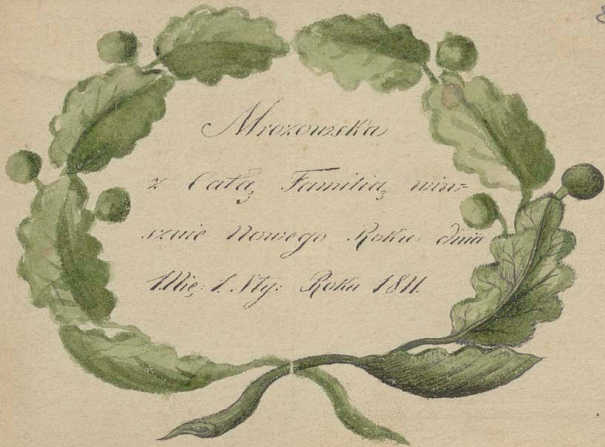 Mrozowska
z Całą Familią win=
szuie Nowego Roku dnia
1. Mię: 1. Sty: Roku 1811.